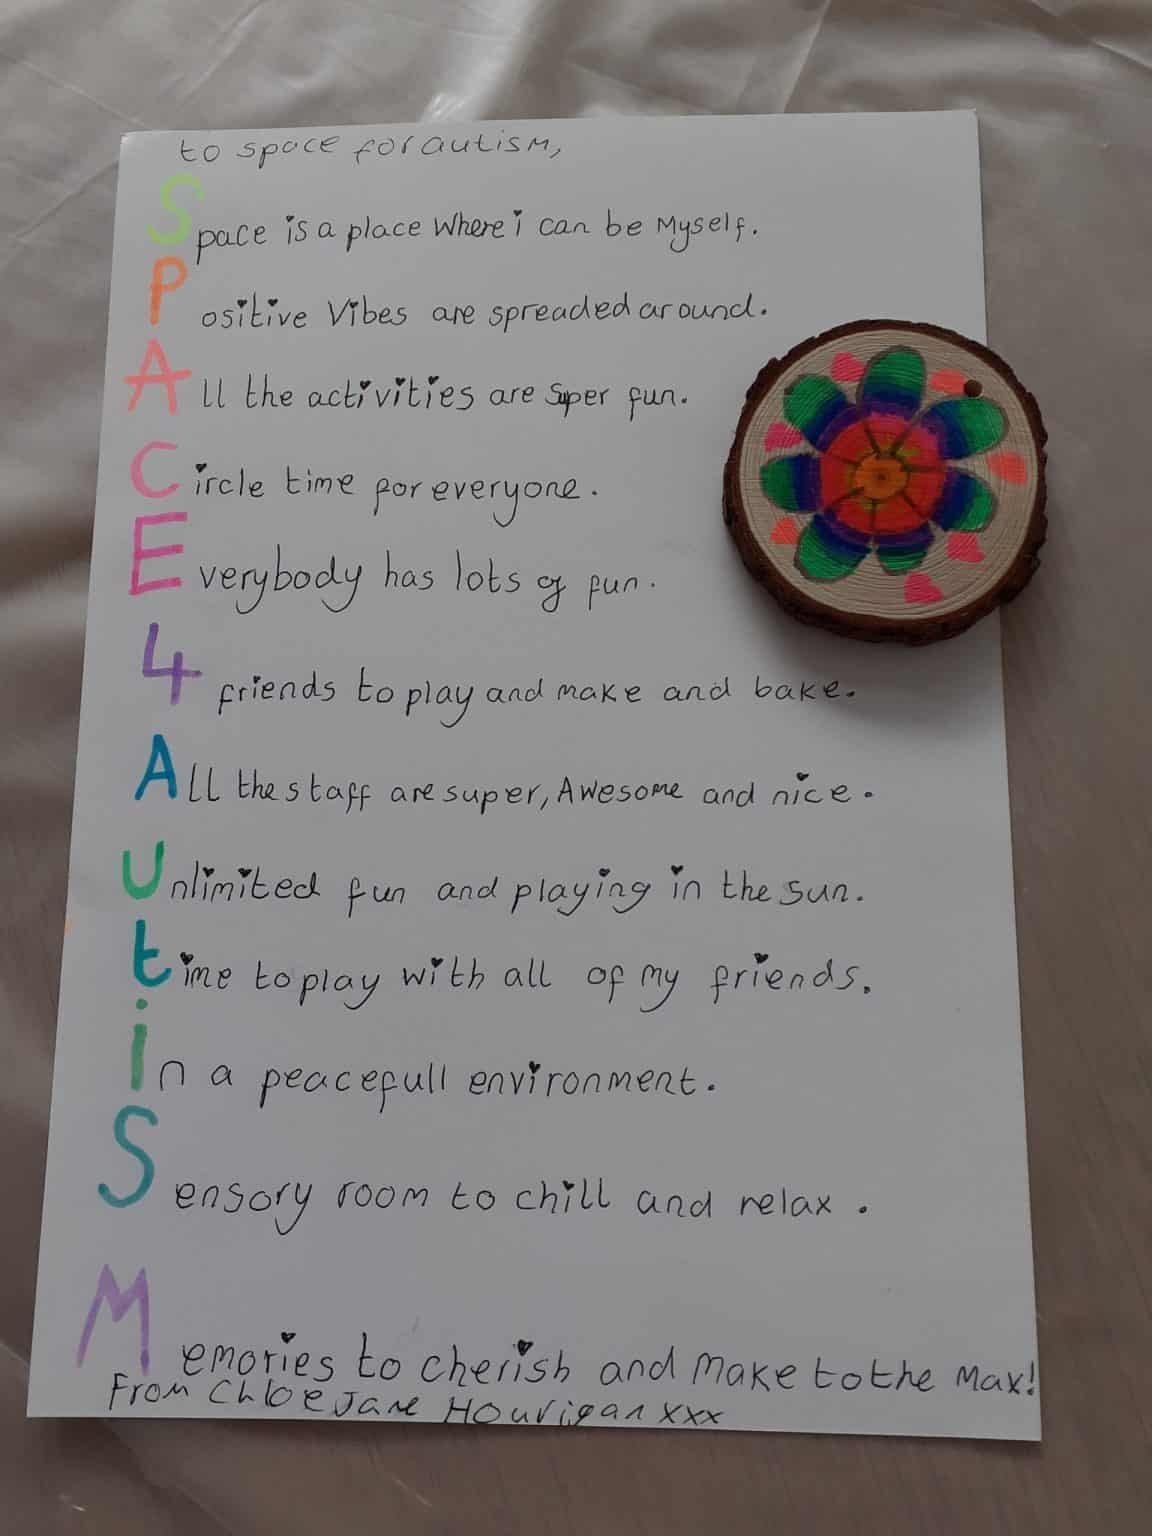 to space for autism,
Space is a place where i can be Myself.
Positive Vibes are spreaded around.
All the activities are Super fun.
Circle time for everyone.
Everybody has lots of fun.
4 friends to play and make and bake.
All the staff are super, Awesome and nice.
Unlimited fun and playing in the sun.
time to play with all of my friends.
in a peacefull environment.
Sensory room to chill and relax.
Memories to cherish and make to the Max!
From Chloe Jane Hourigan xxx